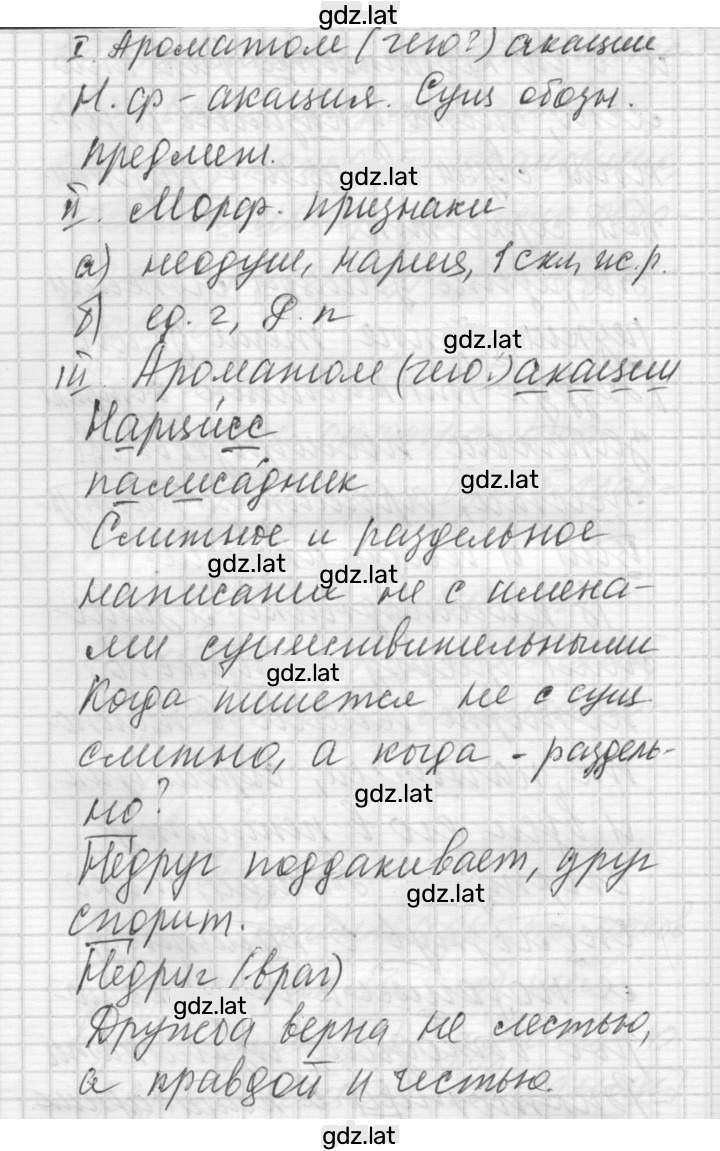 gdz.lat
I. Ароматом (чего?) акации.
Н. ф - акация. Сущ обозн.
gdz.lat
предмет.
II. Морф. признаки
а) неодуш, нариц, 1 скл, ж.р.
б) ед. ч, Р. п
gdz.lat
III. Ароматом (чего?) акации
Нарцисс
gdz.lat
палисадник
Слитное и раздельное
gdz.lat
gdz.lat
написание не с имена-
ми существительными
gdz.lat
Когда пишется не с сущ.
слитно, а когда - раздель-
gdz.lat
но?
Недруг поддакивает, друг
gdz.lat
спорит.
Недруг (враг)
gdz.lat
Дружба верна не лестью,
а правдой и честью.
gdz.lat